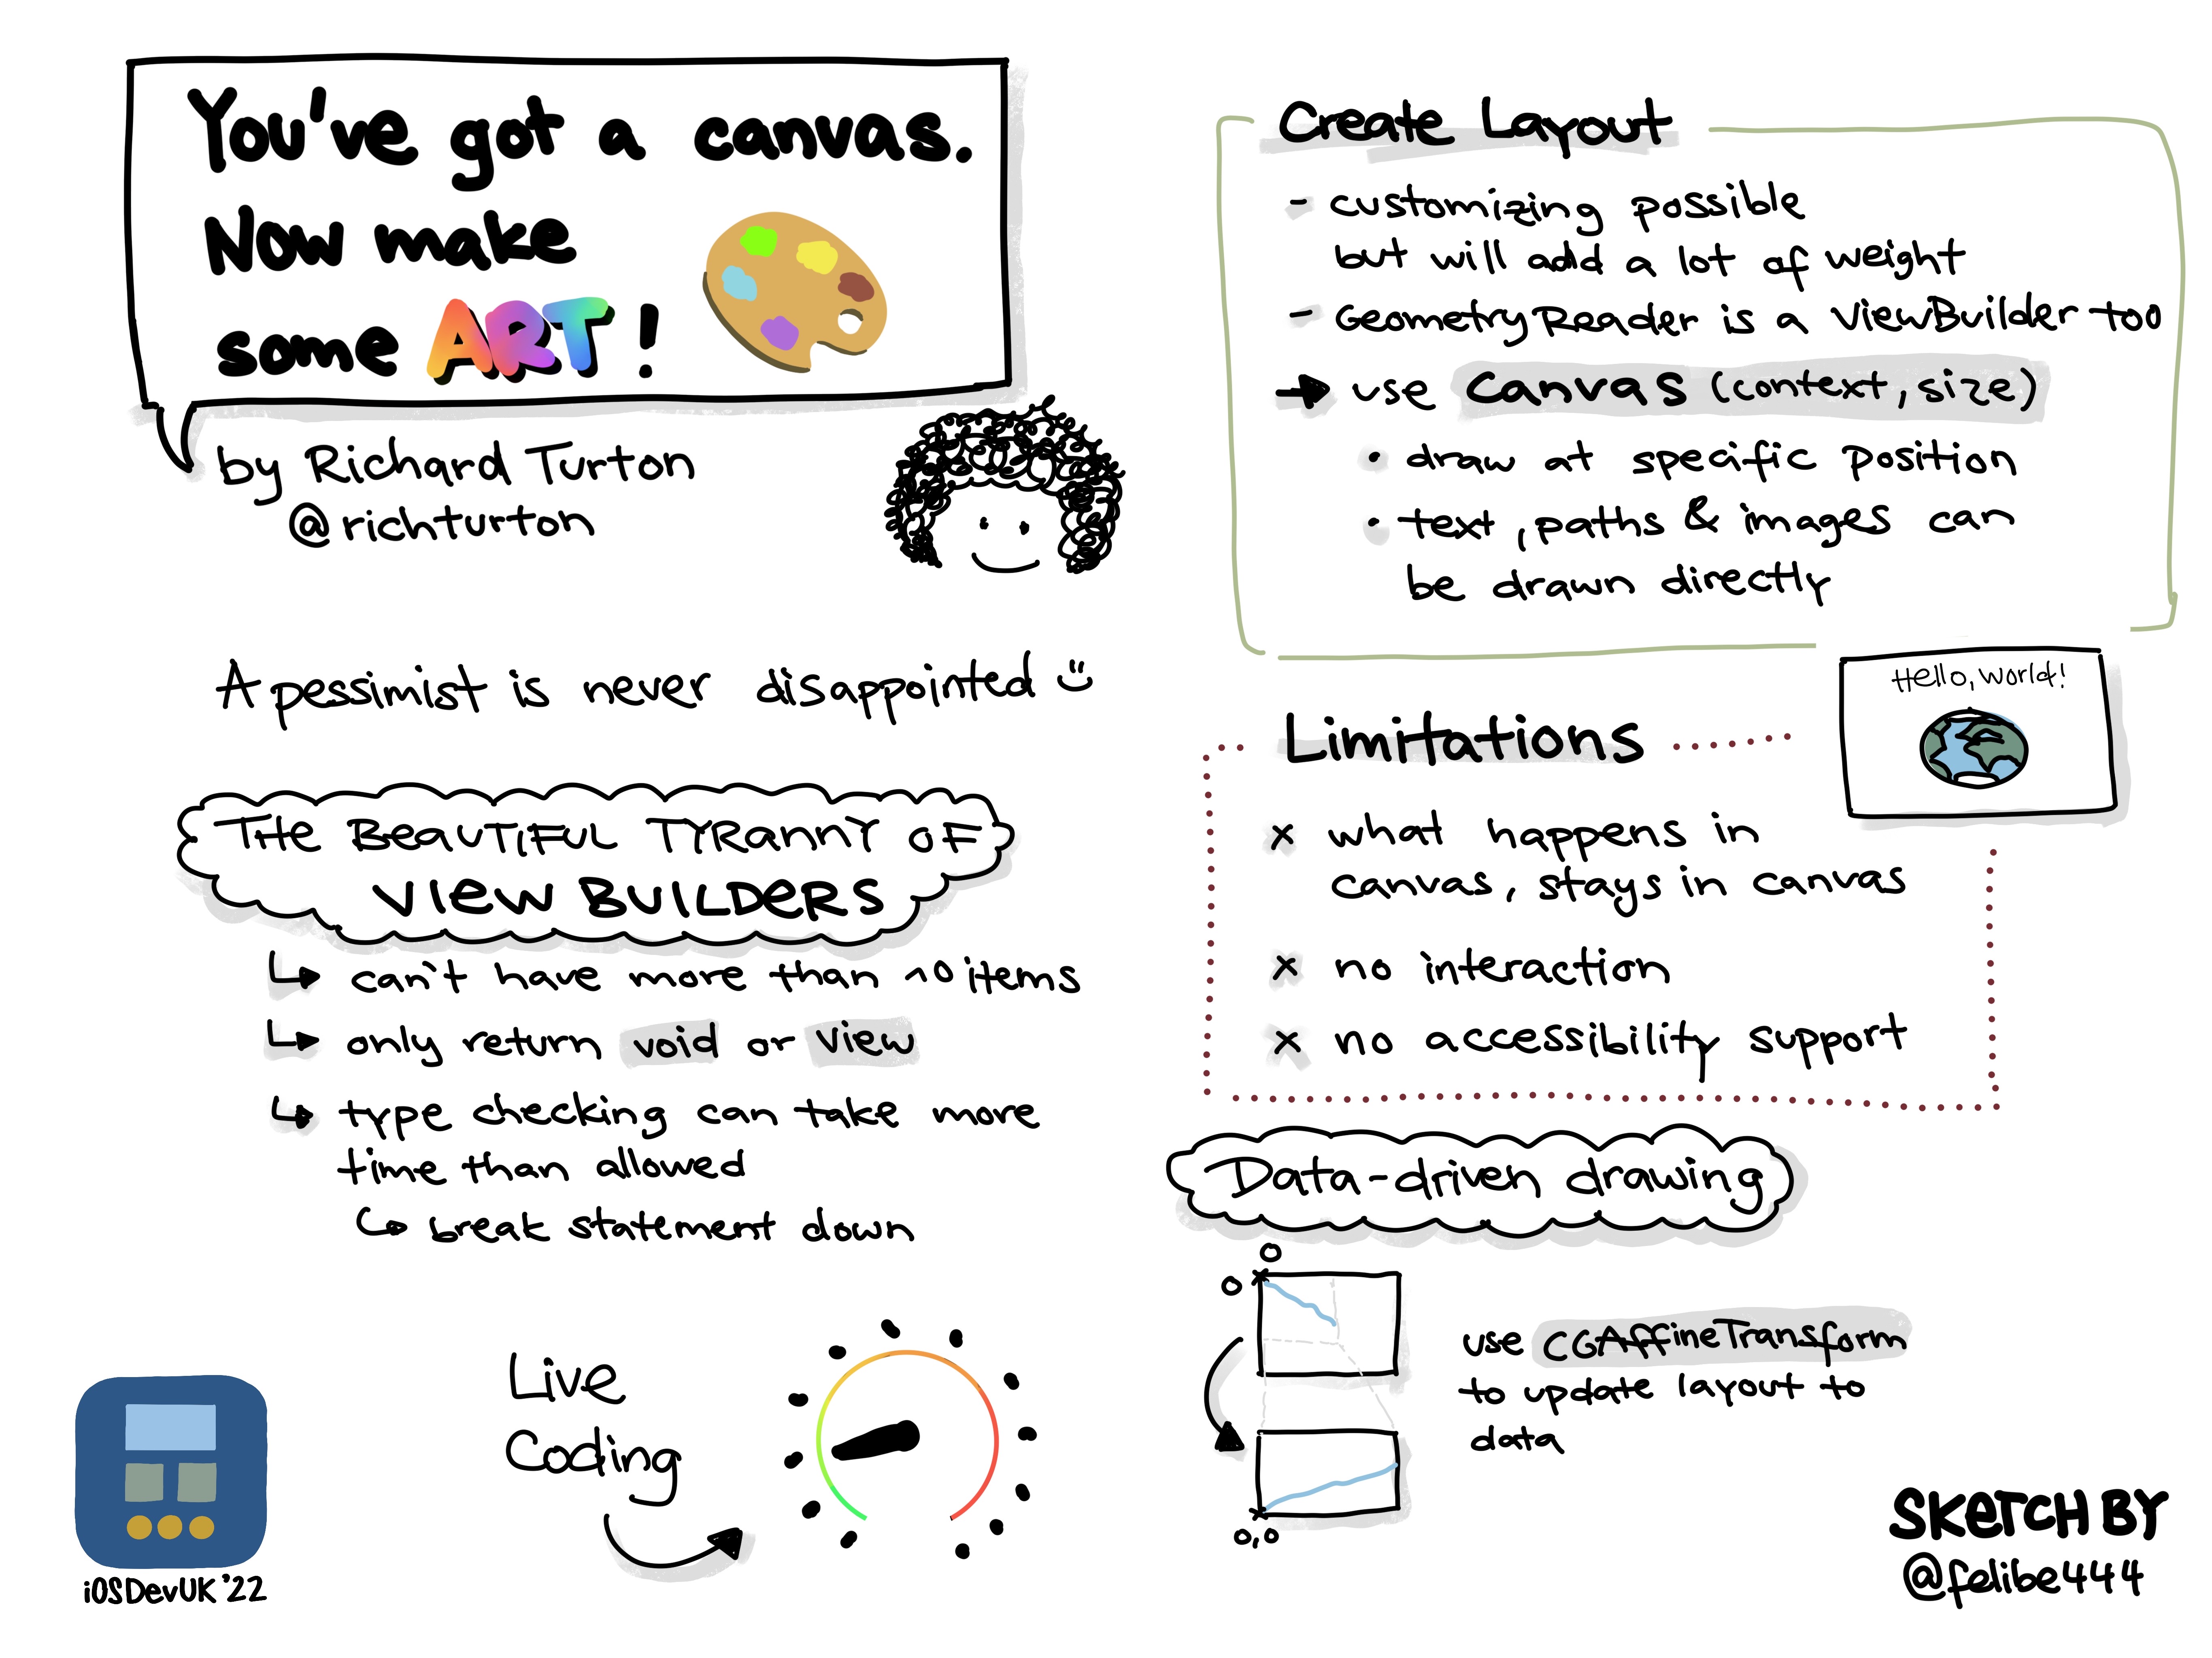 You've got a canvas.
Now make
some ART!
by Richard Turton
@richturton
A pessimist is never disappointed
THE BEAUTIFUL TYRANNY OF
VIEW BUILDERS
can't have more than 10 items
only return void or view
type checking can take more
time than allowed
break statement down
Live
Coding
iOSDevUK '22
Create Layout
- customizing possible
but will add a lot of weight
- GeometryReader is a ViewBuilder too
→ use Canvas (context, size)
• draw at specific position
• text, paths & images can
be drawn directly
Hello, world!
Limitations
x what happens in
canvas, stays in canvas
x no interaction
x no accessibility support
Data-driven drawing
0
0
0,0
use CGAffineTransform
to update layout to
data
SKETCH BY
@felibe444